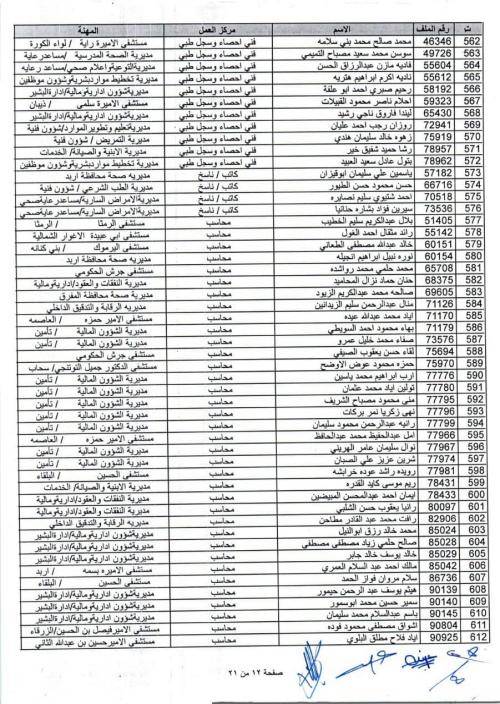 ت رقم الملف الاسم مركز العمل المهنة
562 46346 محمد صالح محمد بني سلامه فني احصاء وسجل طبي مستشفى الاميرة راية / لواء الكورة
563 49726 سوسن محمد سعيد مصباح التميمي فني احصاء وسجل طبي مديرية الصحة المدرسية /مساعدرعاية
564 55604 فاديه مازن عبدالرزاق الحسن فني احصاء وسجل طبي
565 55612 ناديه اكرم ابراهيم فني احصاء وسجل طبي
566 58192 صبري احمد ابو علقة فني احصاء وسجل طبي مديريةشؤون اداريةومالية/ادارةالبشير
567 59323 احلام ناصر محمود القبيلات فني احصاء وسجل طبي مستشفى الاميرة سلمى / ذيبان
568 65430 ليندا فاروق ناجي رشيد فني احصاء وسجل طبي مديريةشؤون اداريةومالية/ادارةالبشير
569 72941 روزان رجب احمد عليان فني احصاء وسجل طبي
570 75919 زهوه خالد سليمان هندي فني احصاء وسجل طبي مديرية التمريض / شؤون فنية
571 78957 رشا حميد شفيق خير فني احصاء وسجل طبي مديرية الابنية والصيانة/ الخدمات
572 78962 بتول عادل سعيد العبيد فني احصاء وسجل طبي
573 57182 ياسمين علي سليمان كاتب / ناسخ مديرية صحة محافظة اربد
574 66716 حسن محمود حسن الطيور كاتب / ناسخ مديرية الطب الشرعي / شؤون فنية
575 70518 احمد سليم كاتب / ناسخ
576 73536 سيرين فؤاد بشاره حنانيا كاتب / ناسخ
577 51405 بلال عبدالكريم سليم الخطيب محاسب مستشفى الرمثا / الرمثا
578 55142 رائد مثقال احمد الغول محاسب مستشفى ابي عبيدة /الاغوار الشمالية
579 60151 خالد عبدالله مصطفى الطعاني محاسب مستشفى اليرموك / بني كنانه
580 60154 نوره نبيل ابراهيم محاسب مديرية صحة محافظة اربد
581 65708 محمد حلمي محمد رواشده محاسب مستشفى جرش الحكومي
582 68375 حنان حماد نزال المحاميد محاسب مديرية النفقات والعقود/اداريةومالية
583 69605 صالحه محمد عبدالكريم الزيود محاسب مديرية صحة محافظة المفرق
584 71126 منال عبدالرحمن سليم الزيدانين محاسب مديرية الرقابة والتدقيق الداخلي
585 71170 اياد محمد عبدالله عبده محاسب مستشفى الامير حمزه / العاصمه
586 71179 بهاء محمود احمد السويطي محاسب مديرية الشؤون المالية / تأمين
587 73576 صفاء محمد خليل عمرو محاسب مديرية الشؤون المالية / تأمين
588 75694 لقاء حسن يعقوب الصيفي محاسب مستشفى جرش الحكومي
589 75970 حمزه محمود عوض محاسب مستشفى الدكتور جميل التوتنجي/ سحاب
590 77776 ارب ابراهيم محمد ياسين محاسب مديرية الشؤون المالية / تأمين
591 77780 تولين اياد محمد عثمان محاسب مديرية الشؤون المالية / تأمين
592 77795 منى محمود مصباح الشريف محاسب مديرية الشؤون المالية / تأمين
593 77796 نهى زكريا نمر بركات محاسب مديرية الشؤون المالية / تأمين
594 77799 رانيه عبدالرحمن محمود سليمان محاسب مديرية الشؤون المالية / تأمين
595 77966 امل عبدالحفيظ محمد عبدالحافظ محاسب مستشفى الامير حمزه / العاصمه
596 77967 نوال سليمان عامر الهريني محاسب مديرية الشؤون المالية / تأمين
597 77974 شرين عزيز علي الصبان محاسب مديرية الشؤون المالية / تأمين
598 77981 رويده راشد عوده خرابشه محاسب مستشفى الحسين / البلقاء
599 78431 ريم موسى كايد القدره محاسب مديرية الابنية والصيانة/ الخدمات
600 78433 ايمان احمد عبدالمحسن المبيضين محاسب مديرية النفقات والعقود/اداريةومالية
601 80097 رانيا يعقوب حسن الشلبي محاسب مديرية النفقات والعقود/اداريةومالية
602 82906 رافت محمد عبد القادر مطاحن محاسب مديرية الرقابة والتدقيق الداخلي
603 85024 محمد خالد رزق ابوالنيل محاسب مديريةشؤون اداريةومالية/ادارةالبشير
604 85028 صالح حلمي زياد مصطفى مصطفى محاسب مديريةشؤون اداريةومالية/ادارةالبشير
605 85029 خالد يوسف خالد جابر محاسب مديريةشؤون اداريةومالية/ادارةالبشير
606 85042 مالك احمد عبد السلام العمري محاسب مستشفى الاميره بسمه / اربد
607 86736 سلام مروان فواز الحمد محاسب مستشفى الحسين / البلقاء
608 90139 هيثم يوسف عبد الرحمن حيمور محاسب مديريةشؤون اداريةومالية/ادارةالبشير
609 90140 سمير حسين محمد ابوسمور محاسب مديريةشؤون اداريةومالية/ادارةالبشير
610 90145 باسم عبدالسلام محمد سليمان محاسب مديريةشؤون اداريةومالية/ادارةالبشير
611 90804 اشواق مصطفى محمود فوده محاسب مستشفى الاميرفيصل بن الحسين/الزرقاء
612 90925 اياد فلاح مطلق البلوي محاسب مستشفى الاميرحسين بن عبدالله الثاني
صفحة ١٢ من ٢١